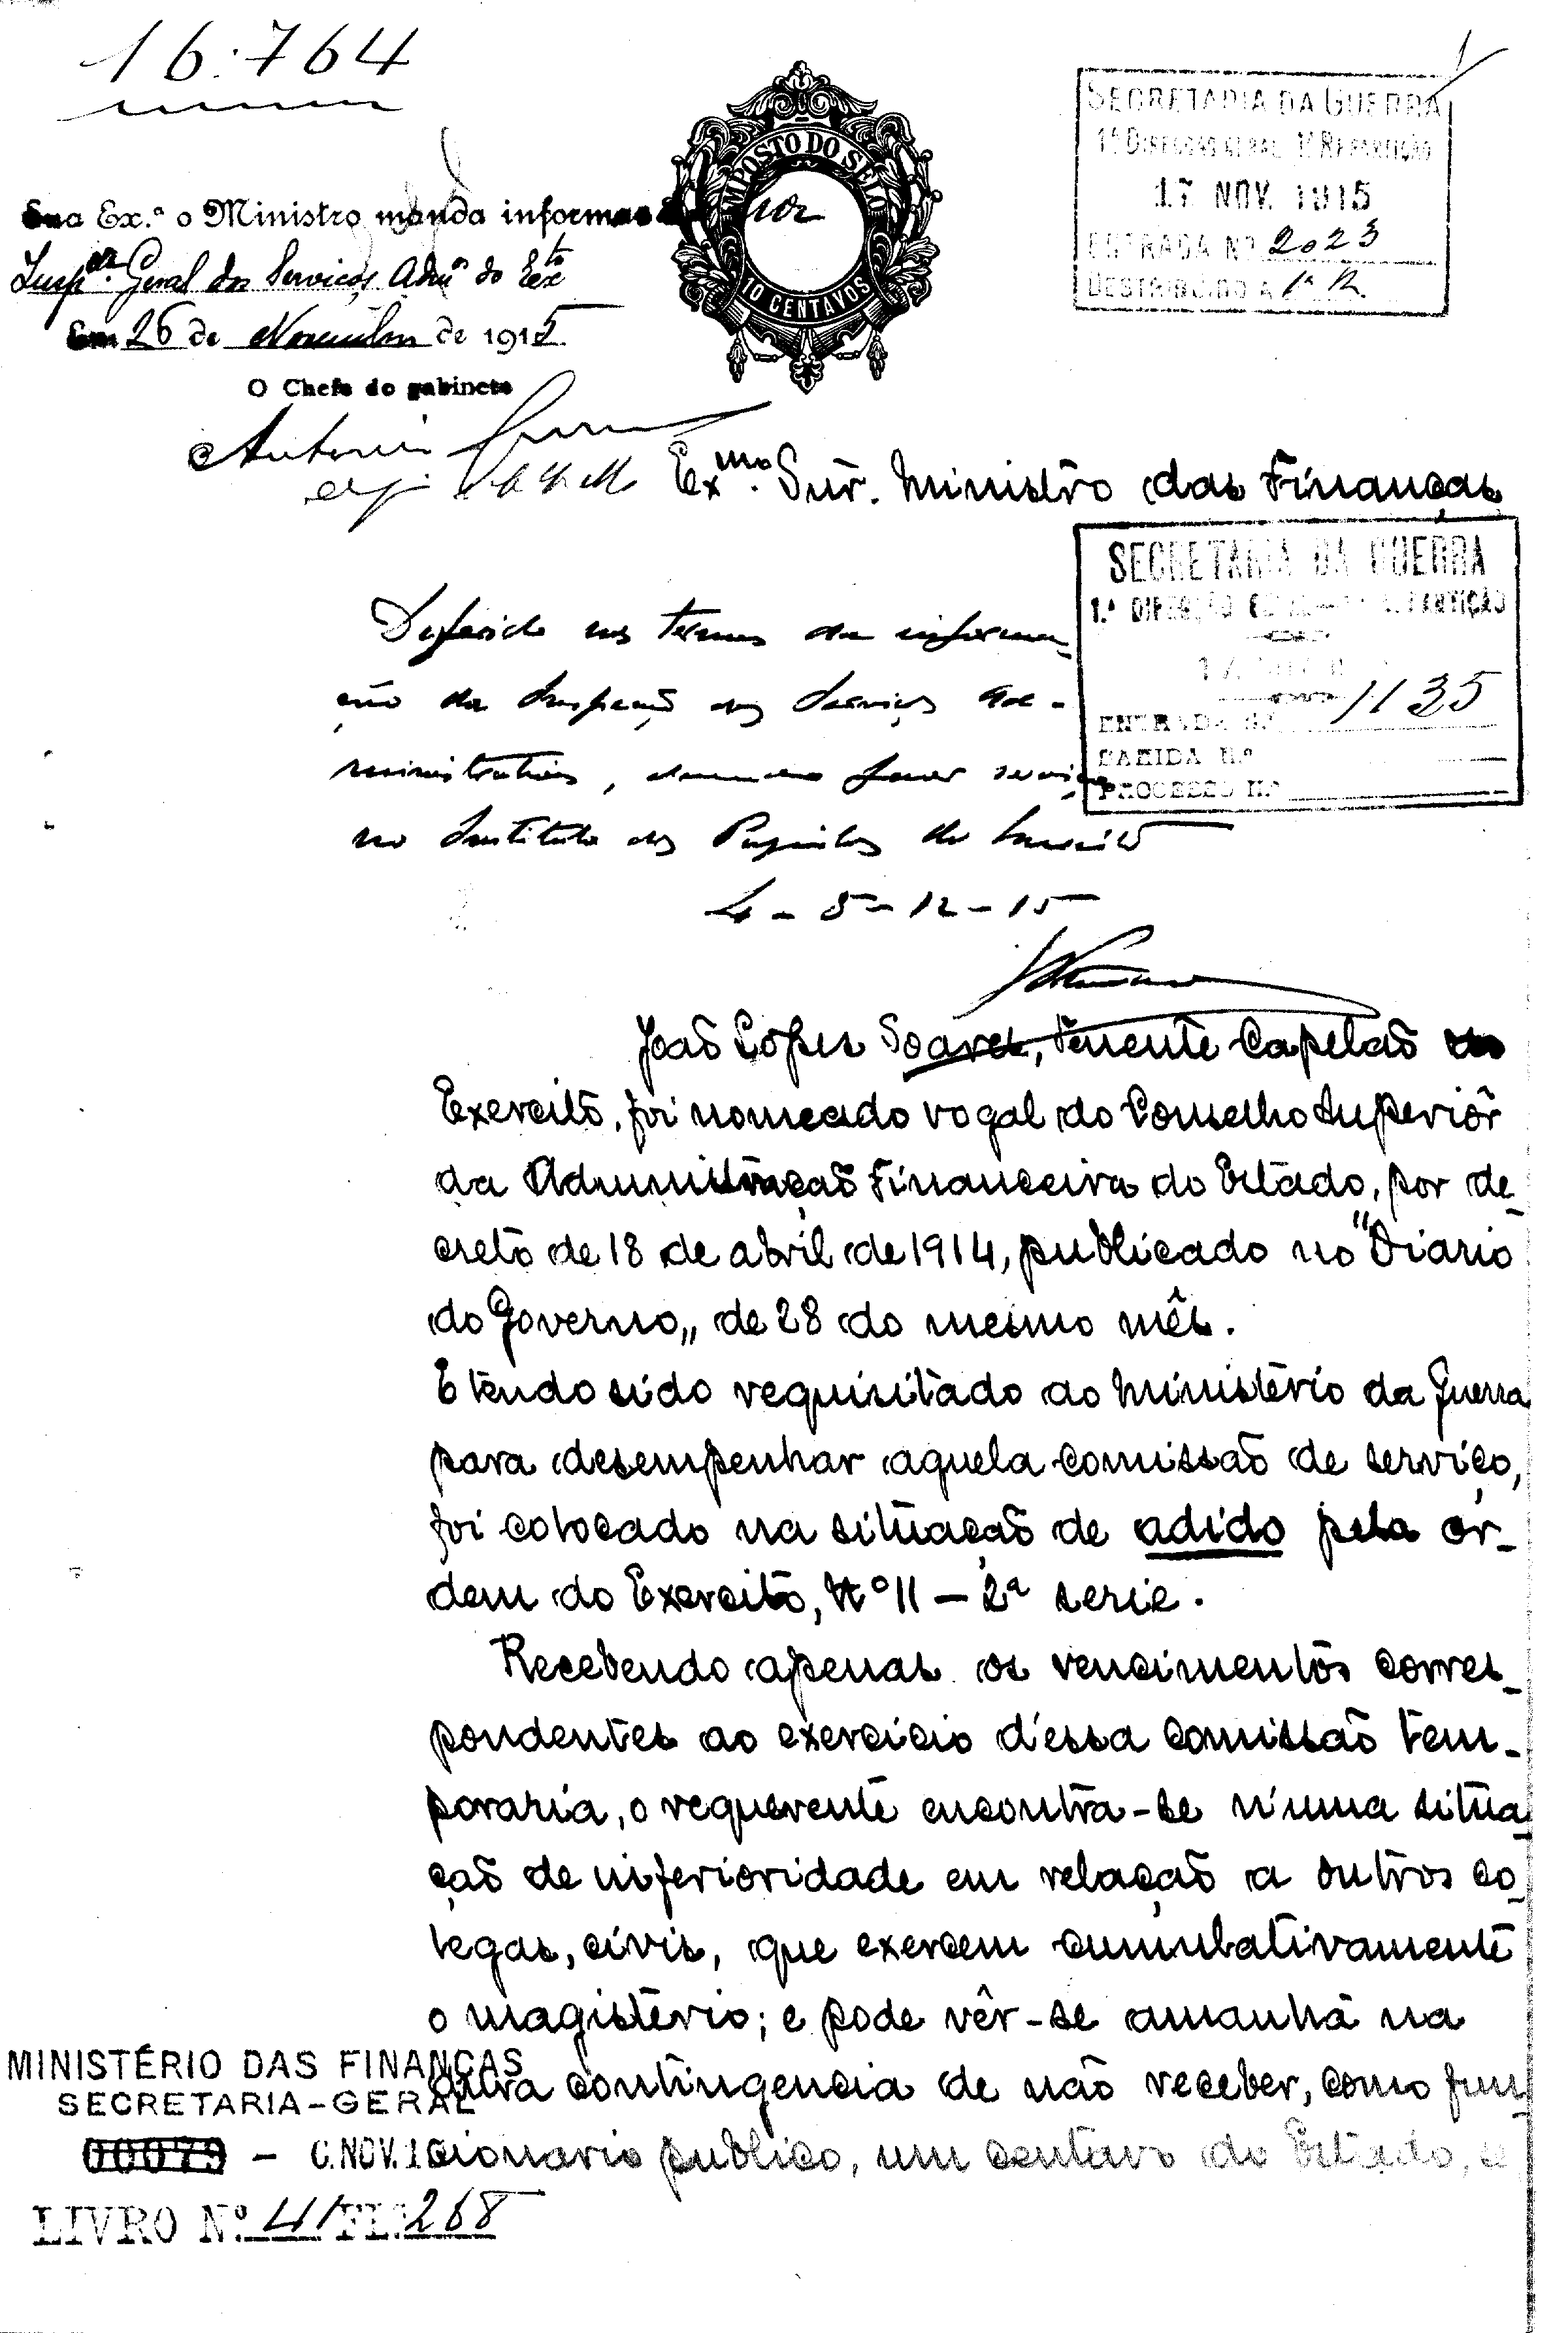 16:764
SECRETARIA DA GUERRA
1ª DIRECÇÃO GERAL 1ª REPARTIÇÃO
17 NOV. 1915
ENTRADA Nº 2023
DESTRIBUIDO A 1ª R.
IMPOSTO DO SELO
10 CENTAVOS
Sua Ex.ª o Ministro manda informar
Insp.or Geral dos Serviços Adm.os do Ex.to
Em 26 de Novembro de 1915
O Chefe do gabinete
Antonio
Ex.mo Snr. Ministro das Finanças
SECRETARIA DA GUERRA
1.ª DIRECÇÃO GERAL REPARTIÇÃO
1135
ENTRADA N.º
SAHIDA N.º
PROCESSO N.º
Deferido nos termos da informa-
ção da Inspecção dos Serviços Ad-
ministrativos, devendo fazer serviço
no Instituto dos Pupilos do Exercito
L - 5-12-15
João Lopes Soares, Tenente Capelão do
Exercito, foi nomeado vogal do Conselho Superiôr
da Administração Financeira do Estado, por de-
creto de 18 de abril de 1914, publicado no "Diario
do Governo„ de 28 do mesmo mês.
E tendo sido requisitado ao Ministério da Guerra
para desempenhar aquela comissão de serviço,
foi colocado na situação de adido pela or-
dem do Exercito, Nº 11 – 2ª serie.
Recebendo apenas os vencimentos corres-
pondentes ao exercicio d'essa comissão tem-
poraria, o requerente encontra-se n'uma situa-
ção de inferioridade em relação a outros co-
legas, civis, que exercem cumulativamente
o magistério; e pode vêr-se amanhã na
outra contingencia de não receber, como fun-
cionario publico, um centavo do Estado, se
MINISTÉRIO DAS FINANÇAS
SECRETARIA-GERAL
00079 - 6.NOV.1
LIVRO Nº 41 FL. 268